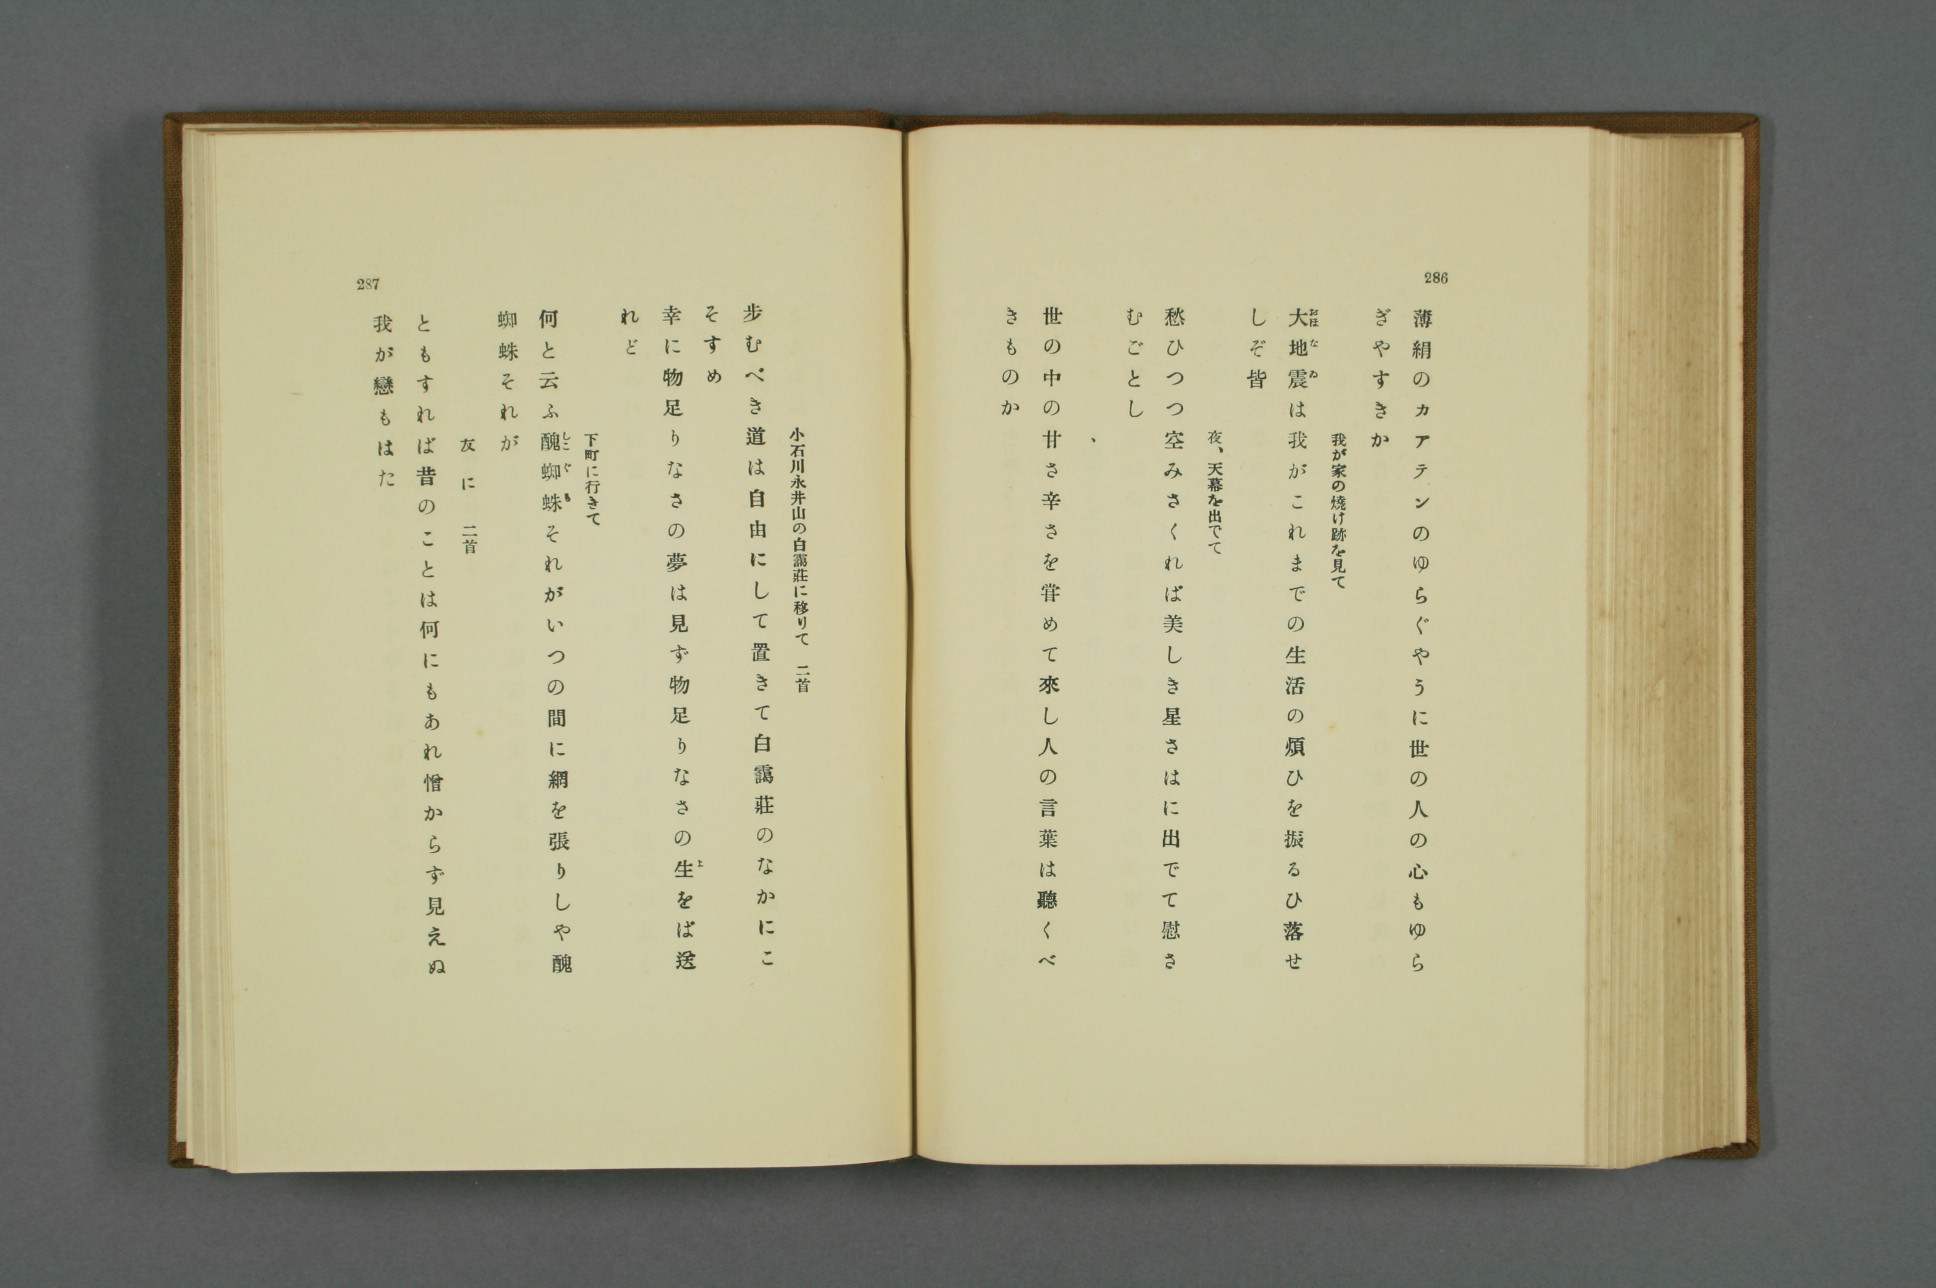 286
薄絹のカアテンのゆらぐやうに世の人の心もゆら
ぎやすきか
我が家の燒け跡を見て
大地震は我がこれまでの生活の煩ひを振るひ落せ
おほなゐ
しぞ皆
夜、天幕を出でて
愁ひつつ空みさくれば美しき星さはに出でて慰さ
むごとし
、
世の中の甘さ辛さを甞めて來し人の言葉は聽くべ
きものか
287
小石川永井山の白靄莊に移りて 二首
歩むべき道は自由にして置きて白靄莊のなかにこ
そすめ
幸に物足りなさの夢は見ず物足りなさの生をば送
よ
れど
下町に行きて
何と云ふ醜蜘蛛それがいつの間に網を張りしや醜
しこぐも
蜘蛛それが
友に 二首
ともすれば昔のことは何にもあれ憎からず見えぬ
我が戀もはた